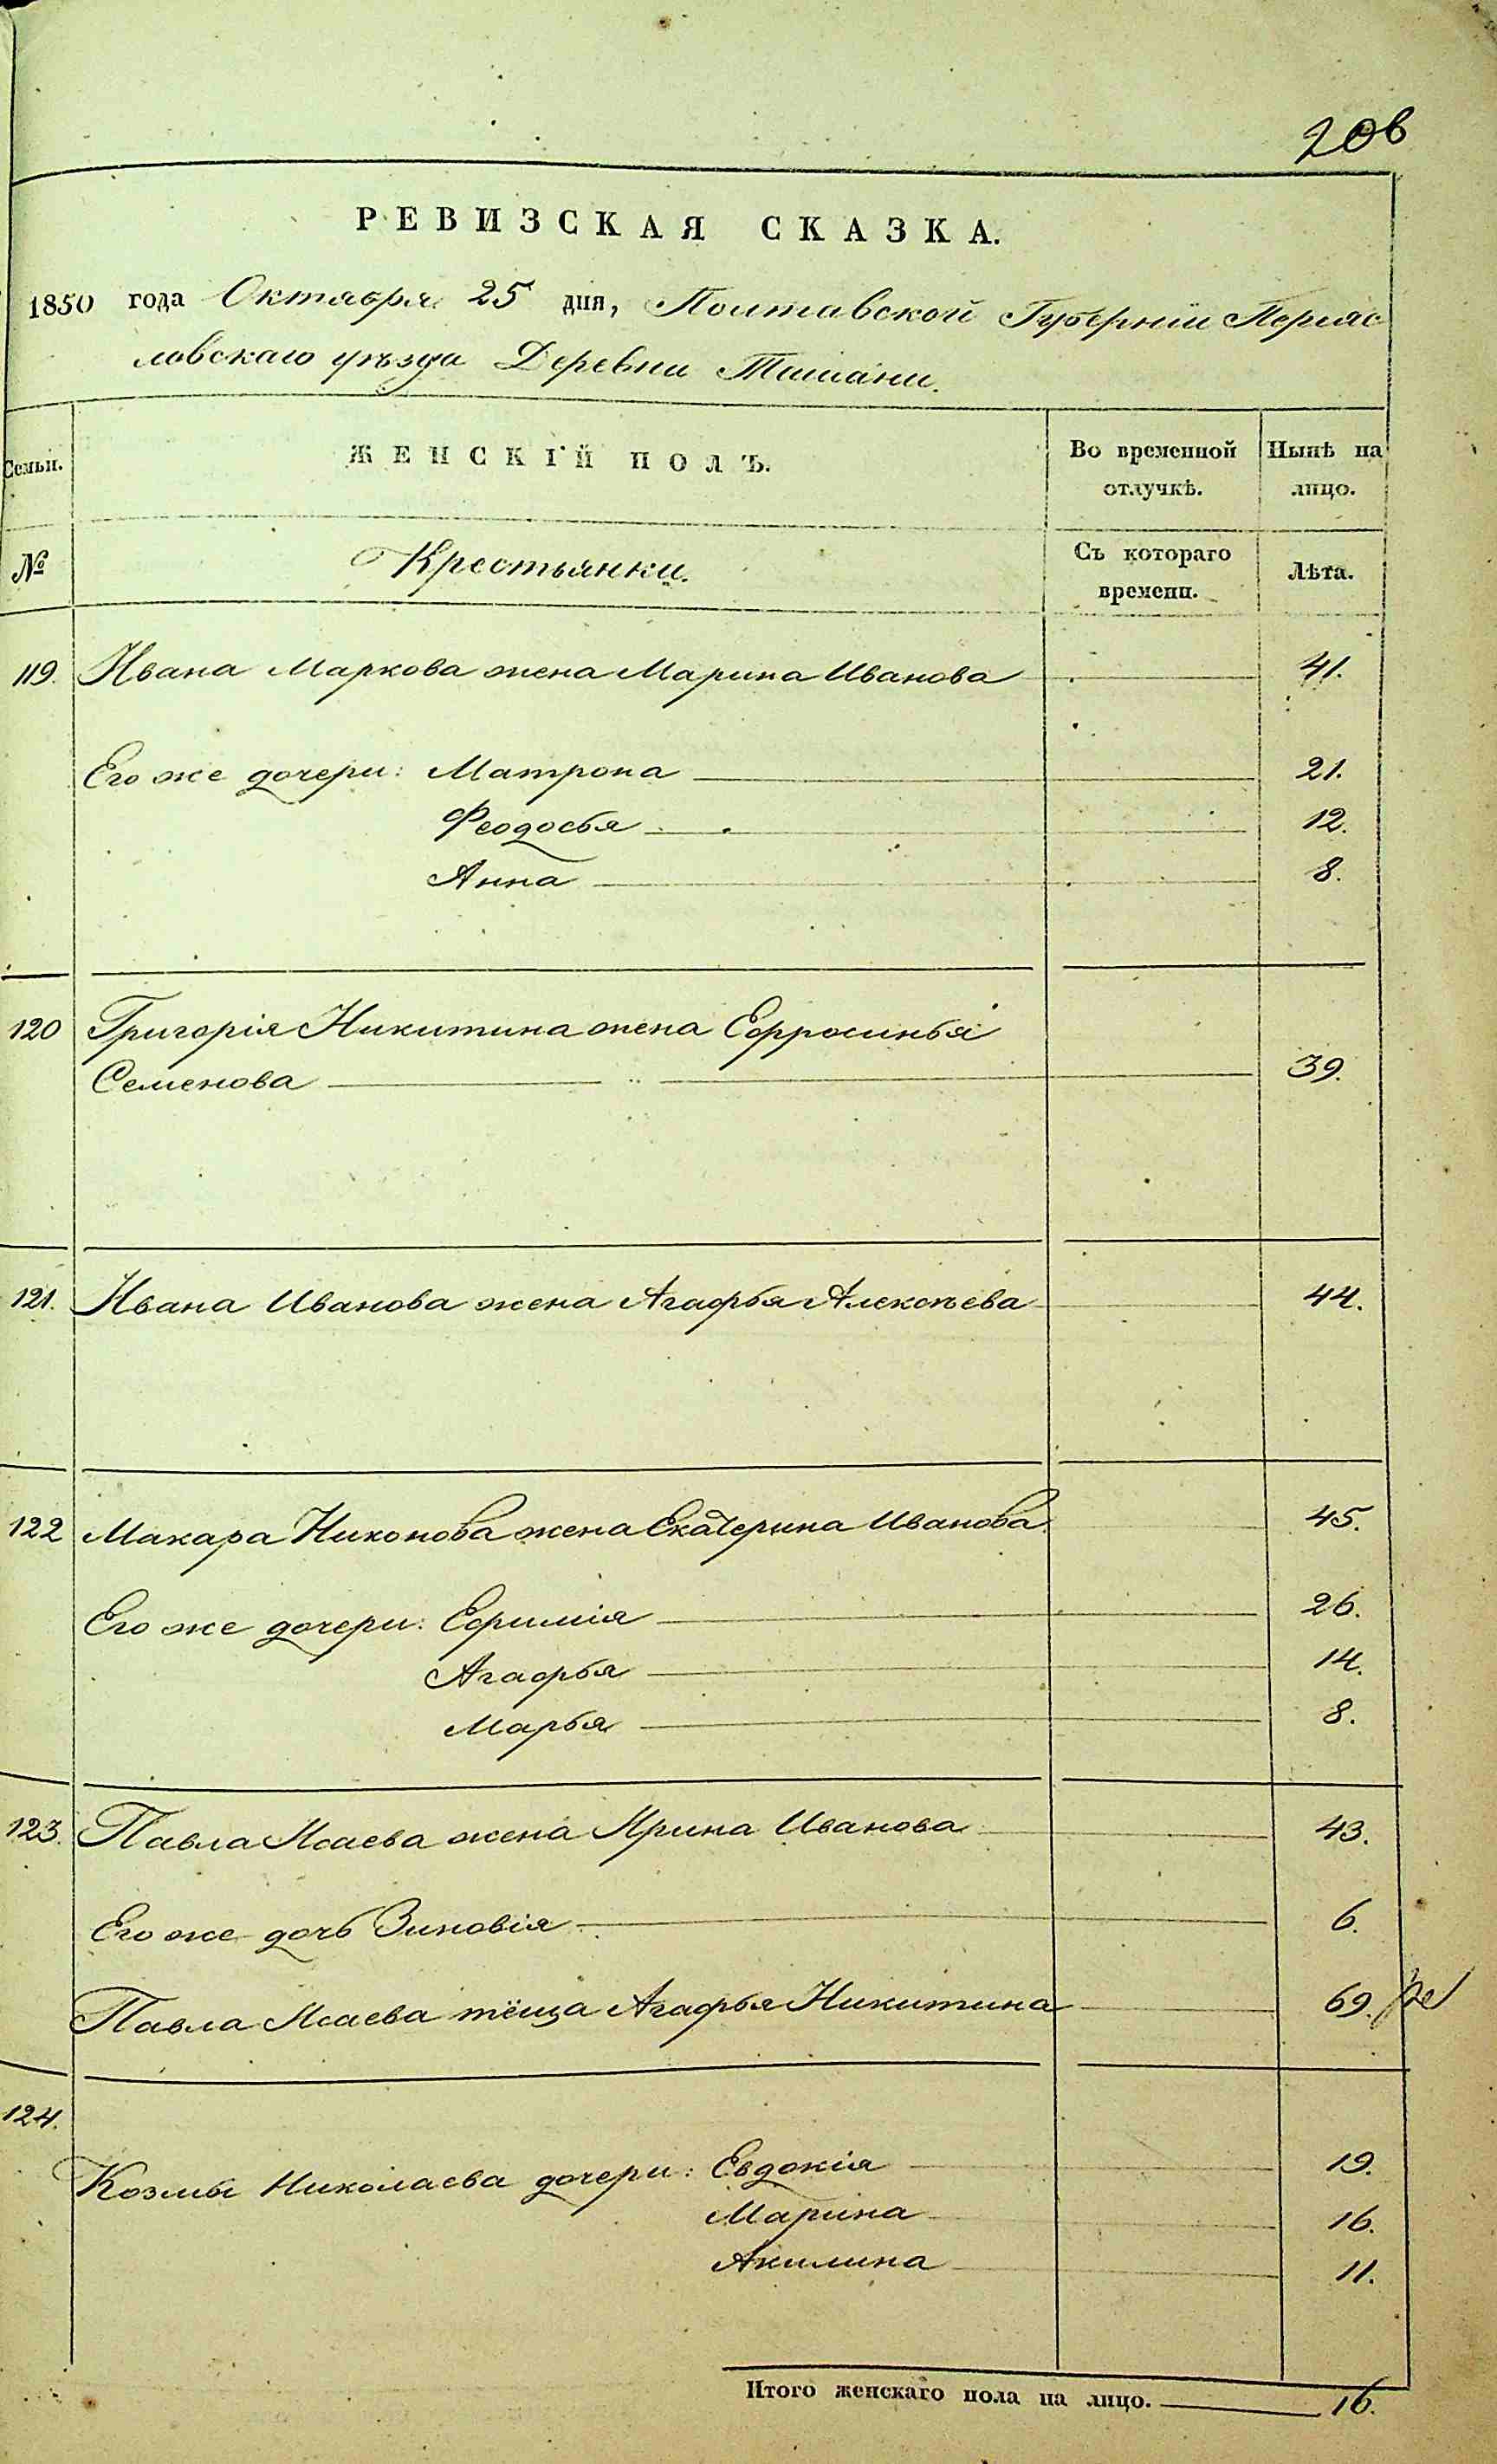 206
РЕВИЗСКАЯ СКАЗКА.
1850 года Октября 25 дня, Полтавской Губерніи Переяс
ловскаго уѣзда Деревни Тишани.
Семьи. ЖЕНСКІЙ ПОЛЪ. Во временной отлучкѣ. Нынѣ на лицо.
№ Крестьянки. Съ котораго времени. Лѣта.
119. Ивана Маркова жена Марина Иванова 41.
Его же дочери: Матрона 21.
Феодосья 12.
Анна 8.
120 Григорія Никитина жена Ефросинья
Семенова 39.
121. Ивана Иванова жена Агафья Алексѣева 44.
122 Макара Никонова жена Екатерина Иванова 45.
Его же дочери: Ефимія 26.
Агафья 14.
Марья 8.
123. Павла Исаева жена Ирина Иванова 43.
Его же дочь Зиновія 6.
Павла Исаева тёща Агафья Никитина 69.
124.
Козмы Николаева дочери: Евдокія 19.
Марина 16.
Акилина 11.
Итого женскаго пола на лицо. 16.